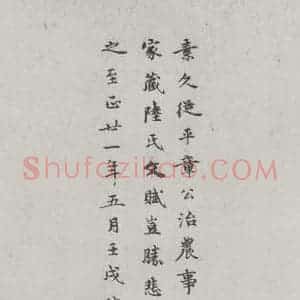 素久從平章公治農事
家藏陸氏文賦豈勝悲
之至正廿一年五月壬戌
Shufaziliao.COM